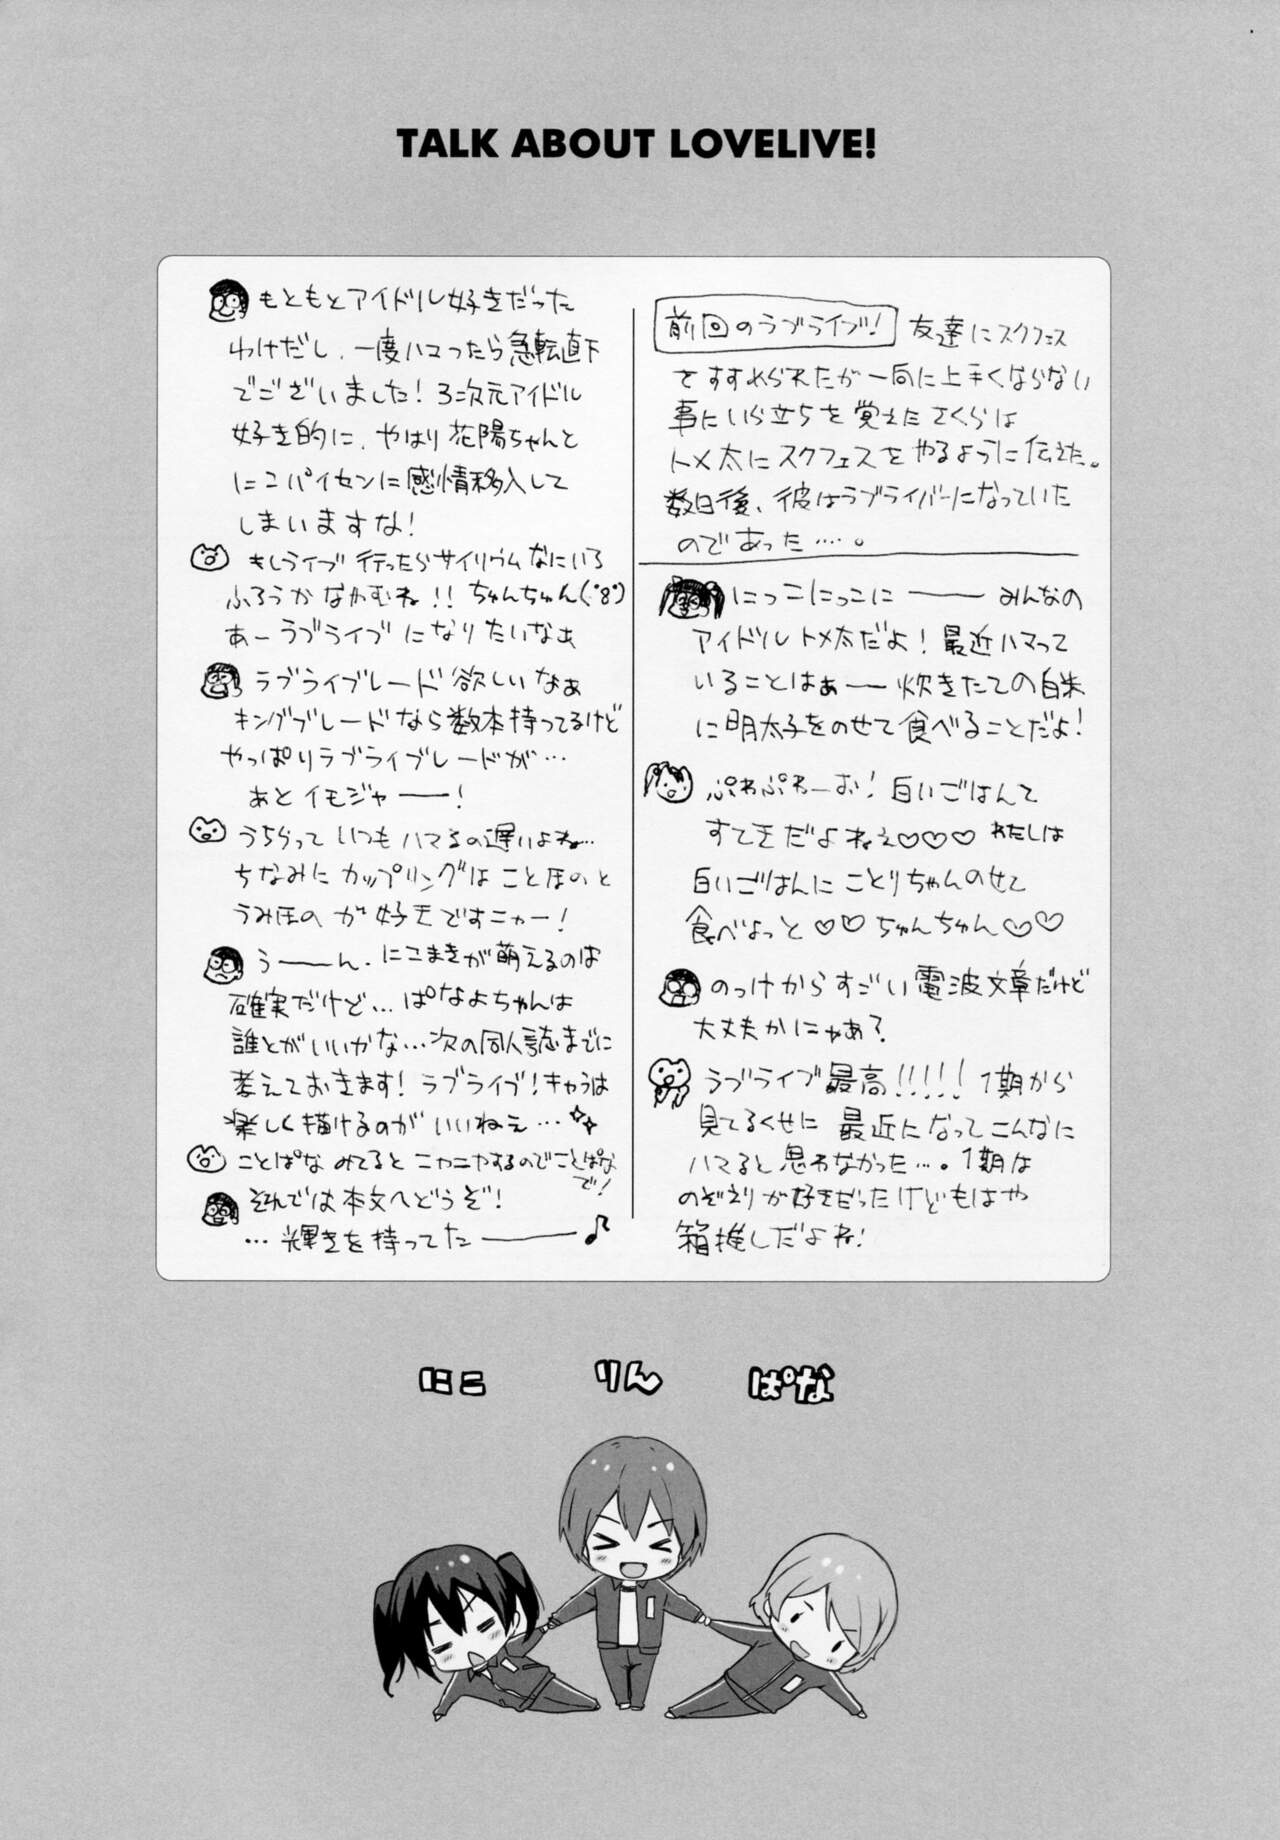 TALK ABOUT LOVELIVE!
前回のラブライブ! 友達にスクフェス
をすすめられたが一向に上手くならない
事にいら立ちを覚えたさくらは
トメ太にスクフェスをやるように伝えた。
数日後、彼はラブライバーになっていた
のであった……。
にっこにっこに―― みんなの
アイドルトメ太だよ!最近ハマって
いることはぁー 炊きたての白米
に明太子をのせて食べることだよ!
ぷわぷわーお!白いごはんて
すてきだよねぇ♡♡♡ わたしは
白いごはんにことりちゃんのせて
食べよっと♡♡ちゅんちゅん♡♡
のっけからすごい電波文章だけど
大丈夫かにゃあ?
ラブライブ最高!!!!! 1期から
見てるくせに 最近になってこんなに
ハマると思わなかった…。1期は
のぞえりが好きだったけどもはや
箱推しだよね!
もともとアイドル好きだった
わけだし、一度ハマったら急転直下
でございました!3次元アイドル
好き的に、やはり花陽ちゃんと
にこパイセンに感情移入して
しまいますな!
もしライブ行ったらサイリウムなにいろ
ふろうかなやむね!!ちゅんちゅん(・8・)
あーラブライブになりたいなぁ
ラブライブレード欲しいなぁ
キングブレードなら数本持ってるけど
やっぱりラブライブレードが…
あとイモジャ――!
うちらっていつもハマるの遅いよね…
ちなみにカップリングはことほのと
うみほのが好きですニャー!
う――ん、にこまきが萌えるのは
確実だけど…ぱなよちゃんは
誰とがいいかな…次の同人誌までに
考えておきます!ラブライブ!キャラは
楽しく描けるのがいいねぇ…
ことぱなみてるとニヤニヤするのでことぱな
で!
それでは本文へどうぞ!
…輝きを待ってた――♪
にこ りん ぱな